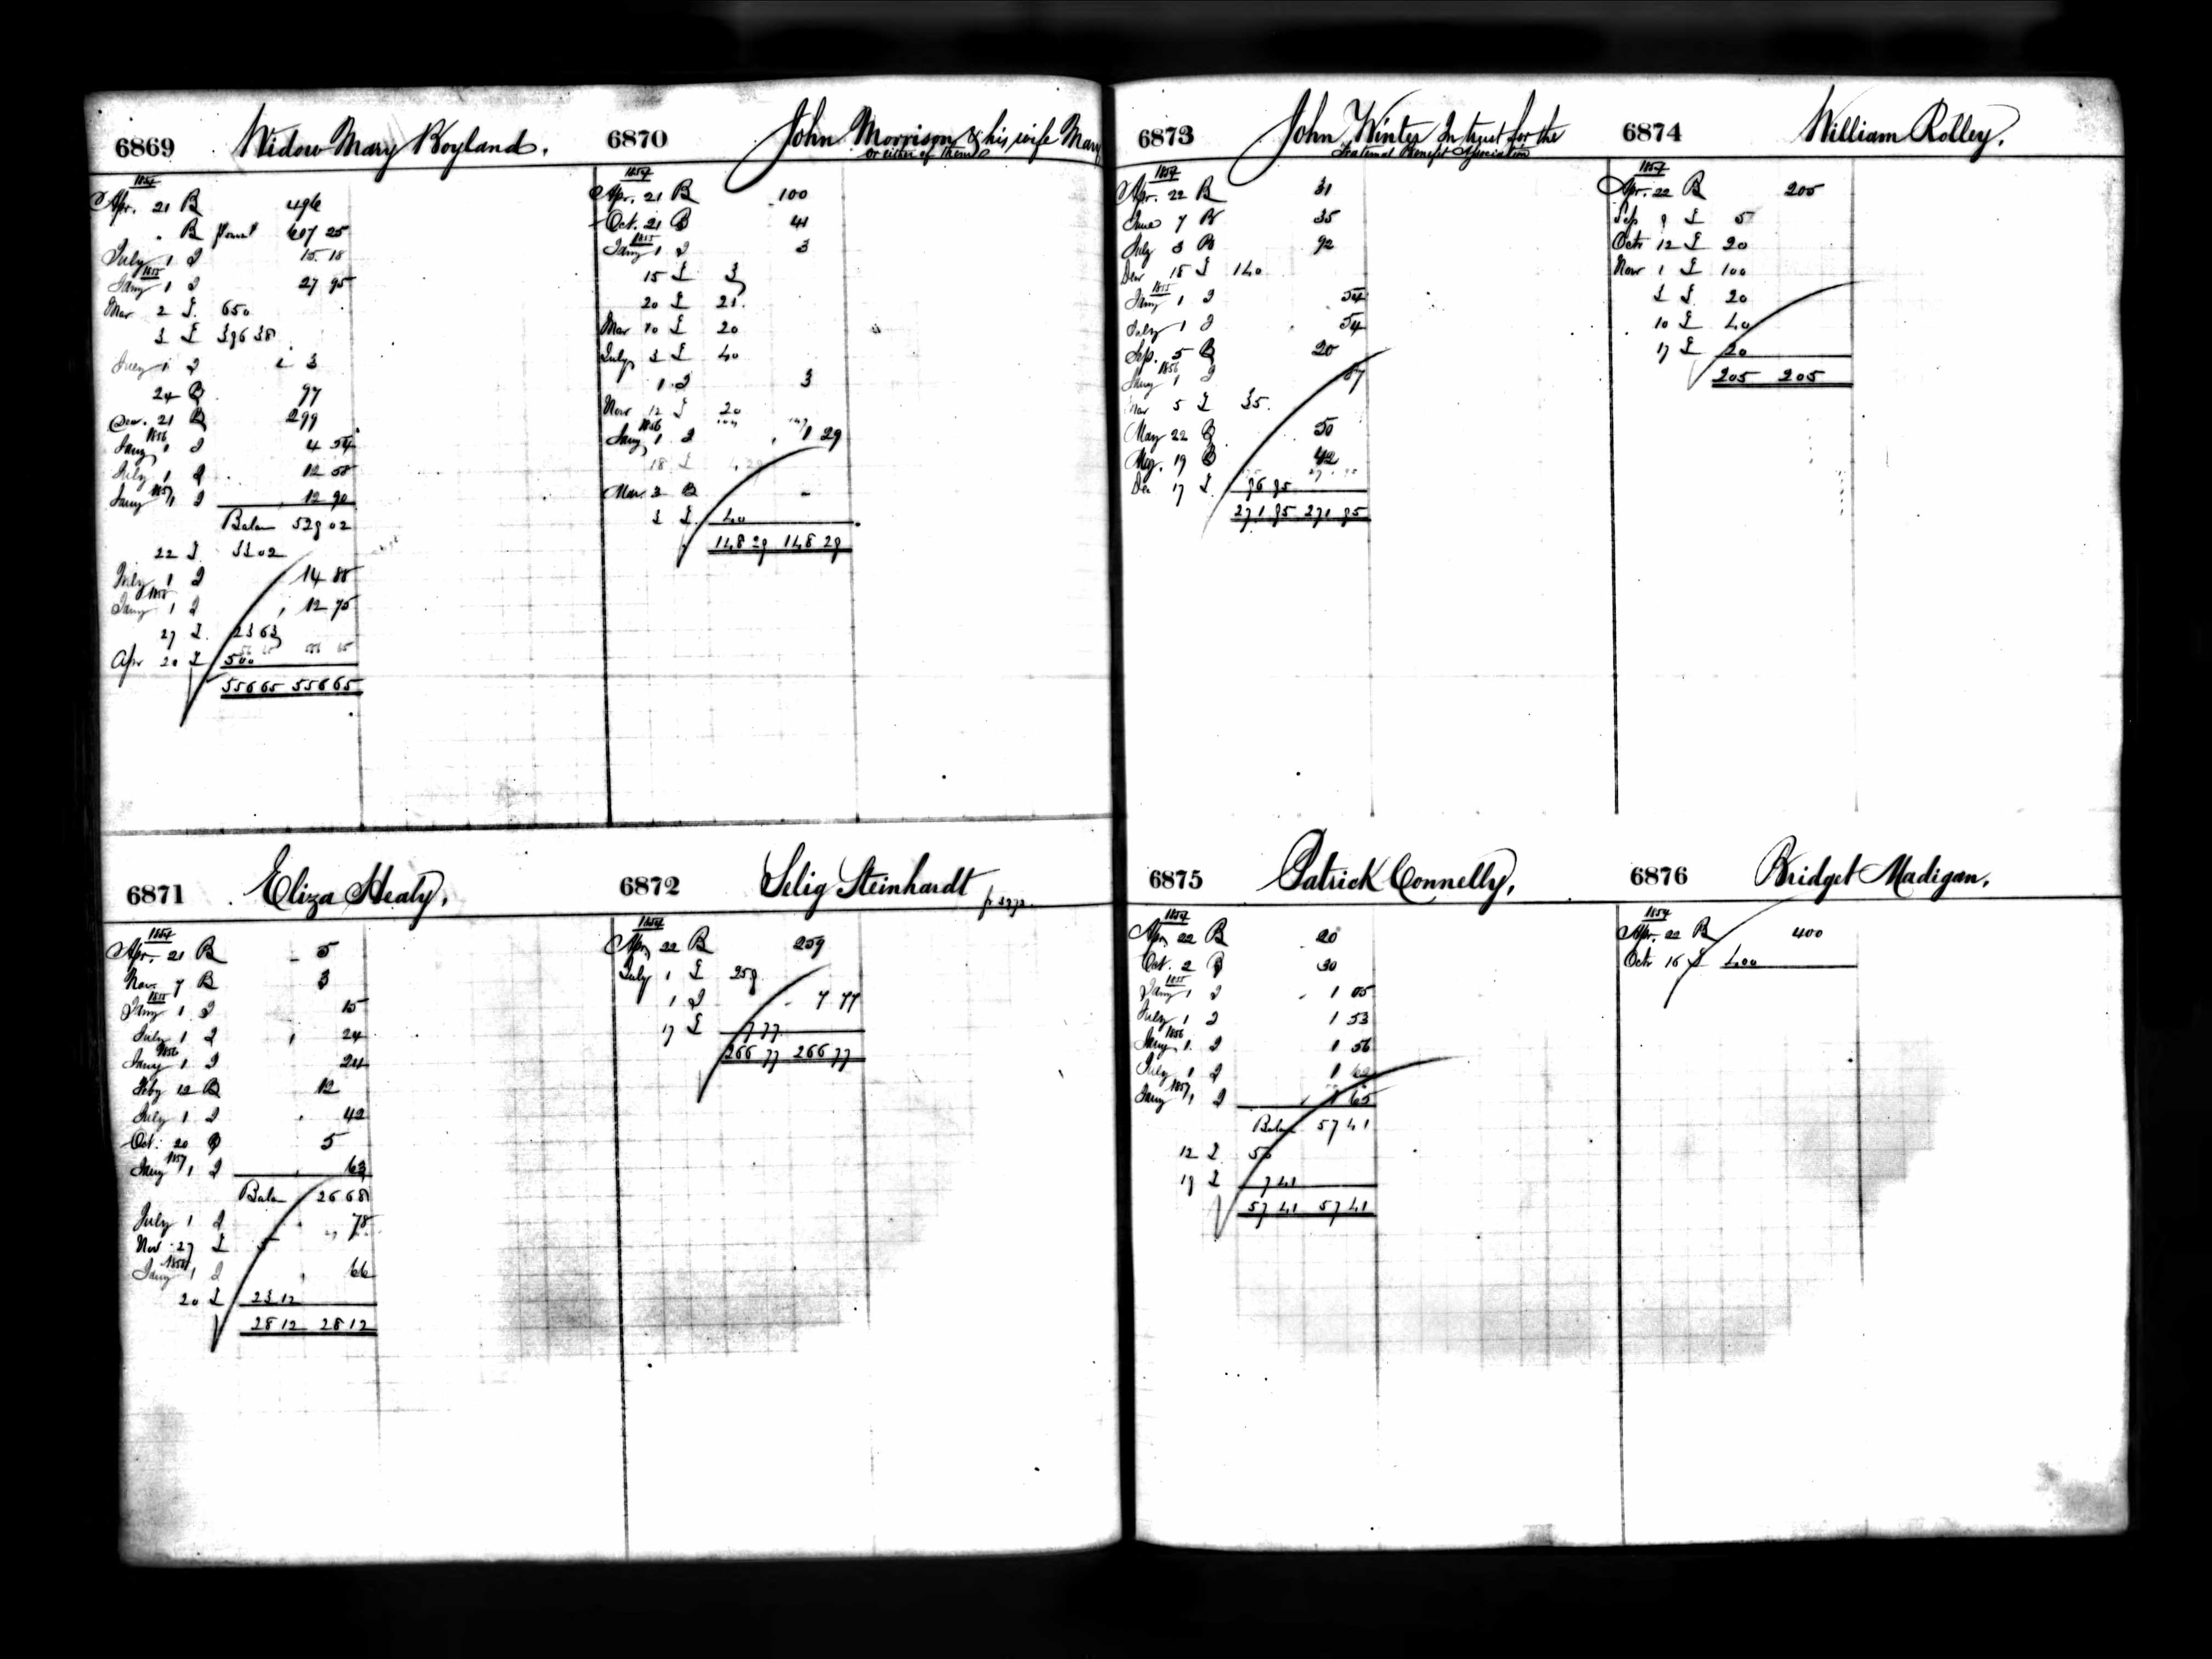 6869 Widow Mary Boyland.
1854
Apr. 21 B 496
" B 607 25
July 1 I 15 18
1855
Jany 1 I 27 95
Mar 2 L 650
3 L 396 38
July 1 I 3
24 B 97
Dec. 21 B 299
1856
Jany 1 I 4 54
July 1 I 12 58
Jany 1857 1 I 12 90
Balan 529 02
22 L 33 02
July 1 I 14 88
1858
Jany 1 I 12 75
27 L 23 63
Apr 20 L 500
556 65 556 65
6870 John Morrison & his wife Mary
or either of them
1854
Apr. 21 B 100
Oct. 21 B 41
1855
Jany 1 I 3
15 L 3
20 L 21
Mar 10 L 20
July 3 L 40
1 I 3
Nov 12 L 20
1856
Jany 1 I 1 29
18 L 4 29
Mar 3 B
3 L 40
148 29 148 29
6871 Eliza Healy,
1854
Apr. 21 B 5
Nov. 7 B 3
1855
Jany 1 I 15
July 1 I 24
1856
Jany 1 I 24
Feby 12 B 12
July 1 I 42
Oct. 20 B 5
Jany 1857 1 I 63
Balan 26 68
July 1 I 78
Nov 27 L 5
1858
Jany 1 I 66
20 L 23 12
28 12 28 12
6872 Selig Steinhardt
1854
Apr. 22 B 259
July 1 L 259
1 I 7 77
17 L 7 77
266 77 266 77
6873 John Winter In trust for the
Fraternal Benefit Association
1854
Apr. 22 B 31
June 7 B 35
July 3 B 92
Dec 18 L 140
1855
Jany 1 I 54
July 1 I 54
Sep. 5 B 20
1856
Jany 1 I 87
Mar 5 L 35
May 22 B 50
Aug. 19 B 42
Dec 17 L 96 95
271 95 271 95
6874 William Rolley,
1854
Apr. 22 B 205
Sep 9 L 5
Octr 12 L 20
Nov 1 L 100
3 L 20
10 L 40
17 L 20
205 205
6875 Patrick Connelly,
1854
Apr. 22 B 20
Oct. 2 B 30
1855
Jany 1 I 1 05
July 1 I 1 53
1856
Jany 1 I 1 56
July 1 I 1 62
Jany 1857 1 I 1 65
Balan 57 41
12 L 50
19 L 7 41
57 41 57 41
6876 Bridget Madigan,
1854
Apr. 22 B 400
Octr 16 L 400